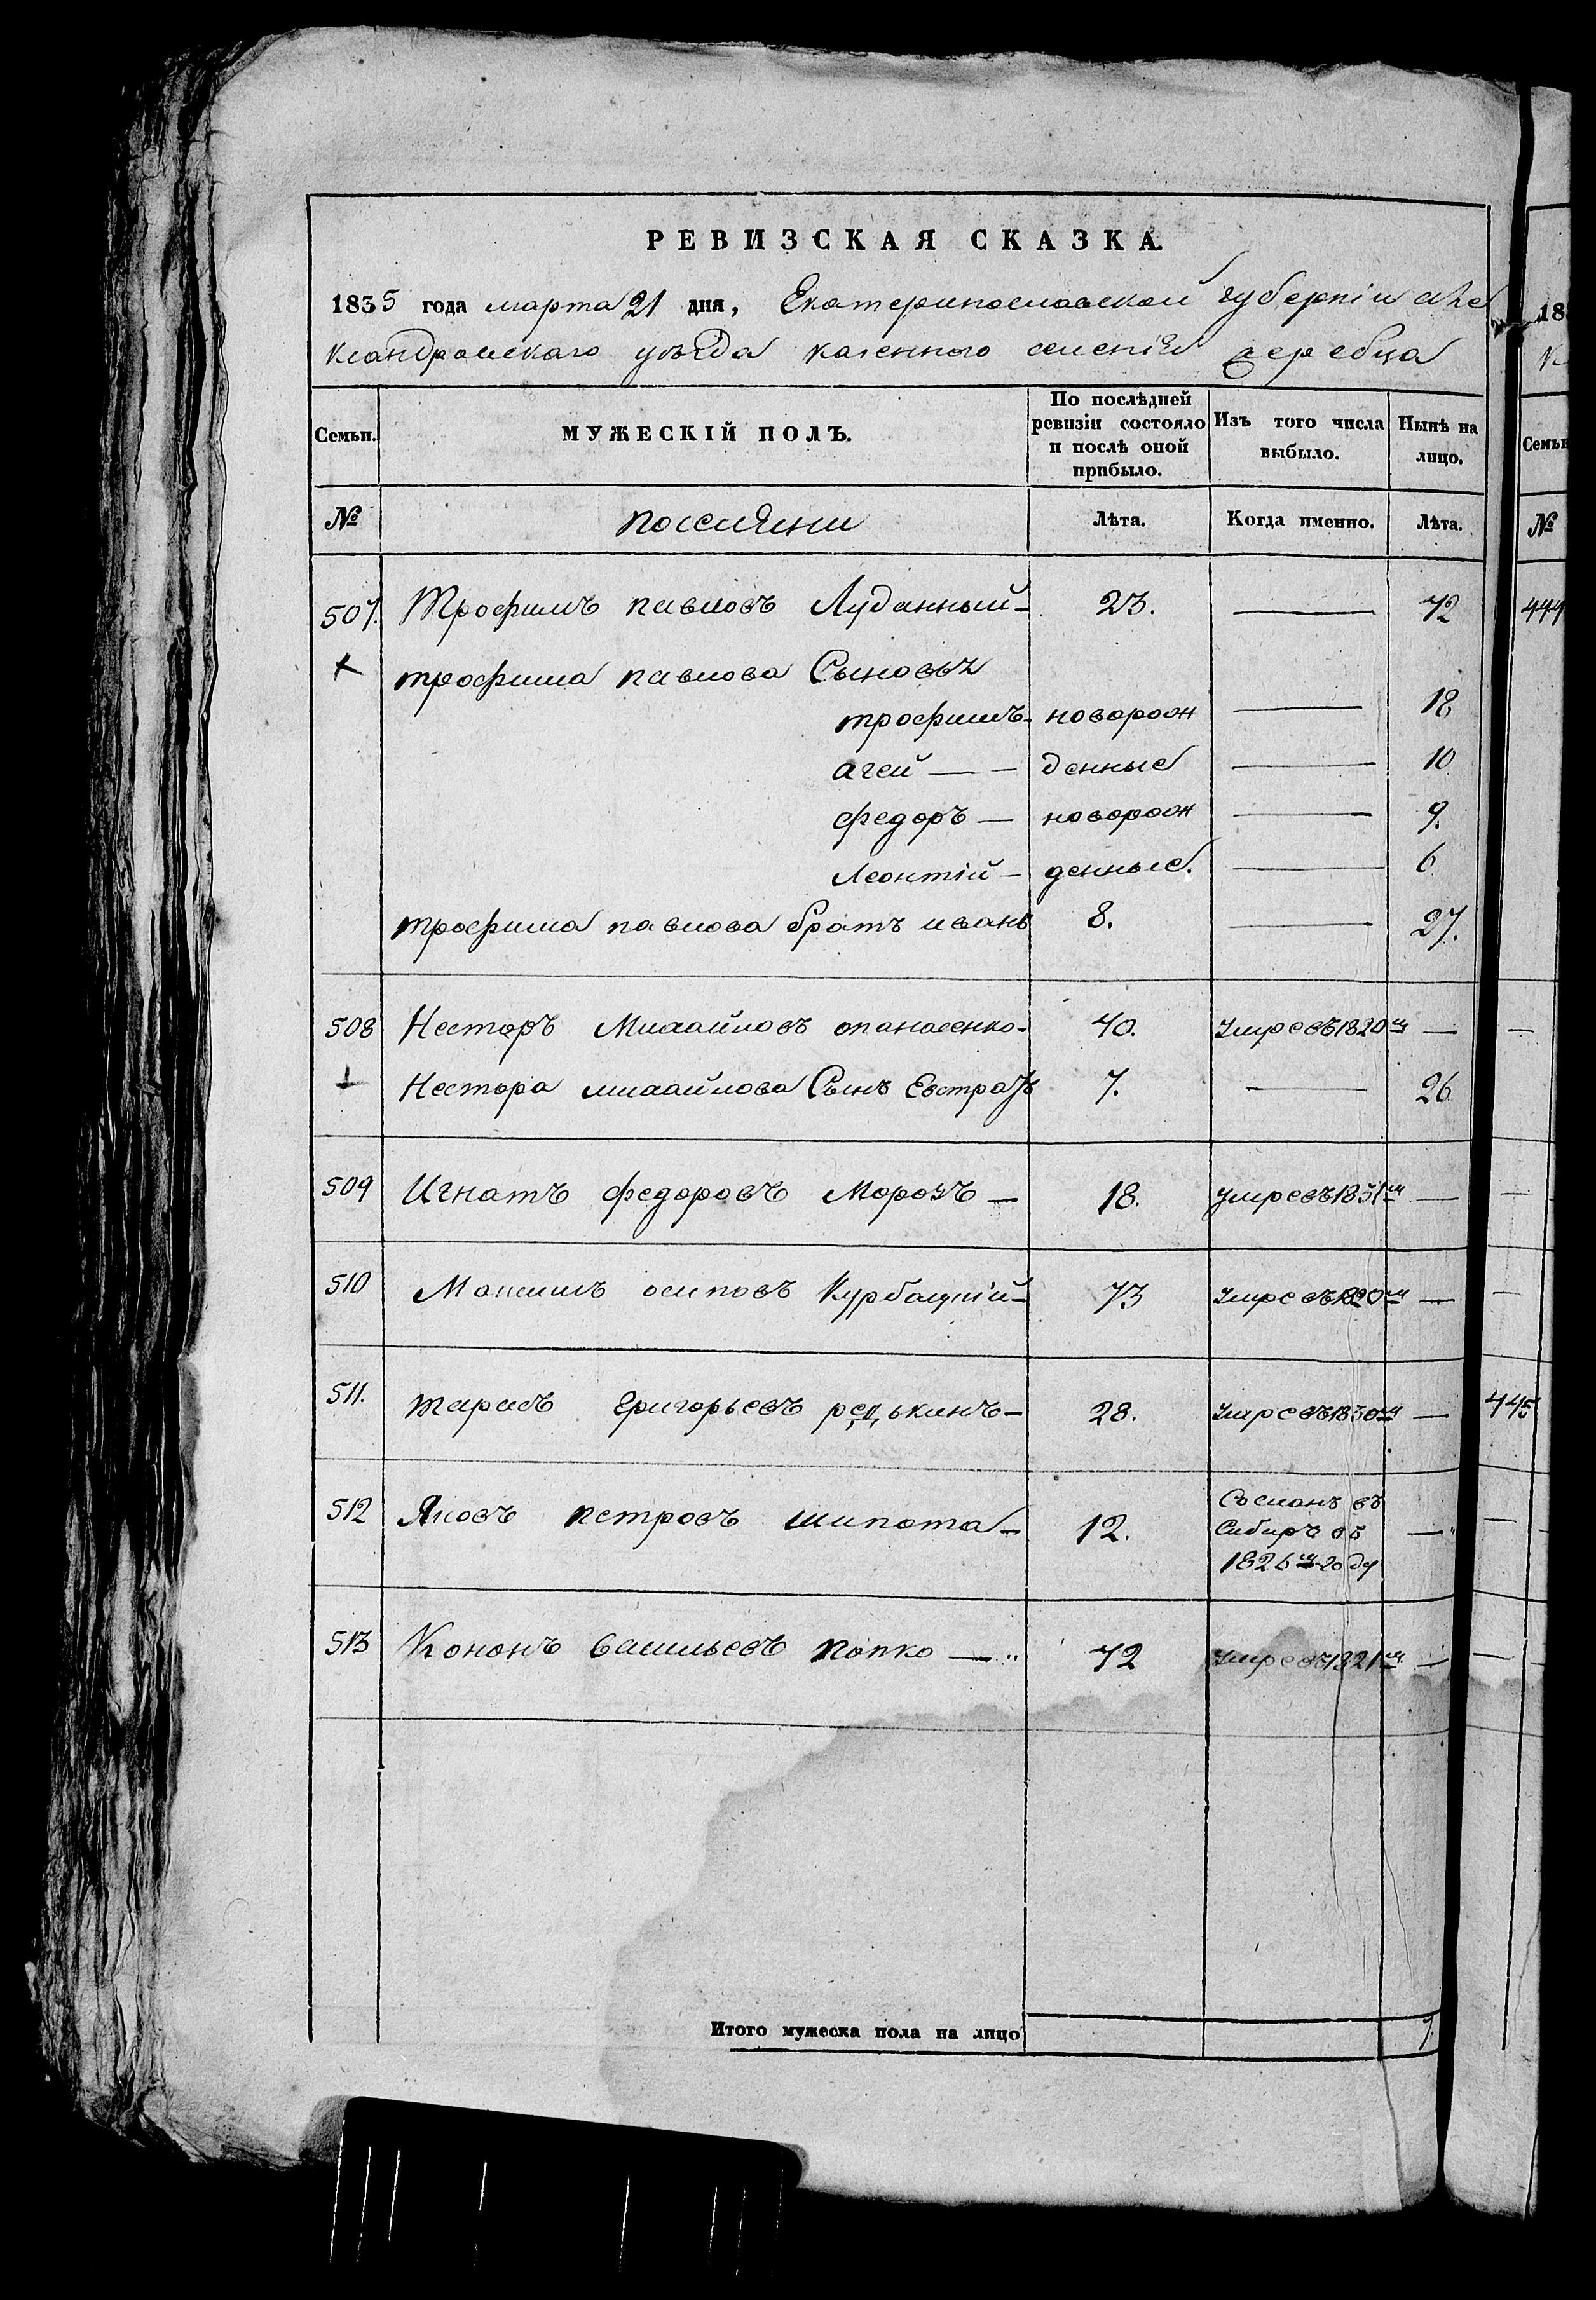 РЕВИЗСКАЯ СКАЗКА.
1835 года марта 21 дня, Екатеринославской губерніи Але
ксандровскаго уѣзда казенного селенія Жеребца
Семьи. МУЖЕСКІЙ ПОЛЪ. По послѣдней ревизіи состояло и послѣ оной прибыло. Изъ того числа выбыло. Нынѣ на лицо.
№ поселяни Лѣта. Когда именно. Лѣта.
507. Трофимъ павловъ Луданный - 23. — 42
трофима павлова Сыновья
трофимъ - новорож — 18
агей — — денные — 10
федоръ — новорож — 9.
Леонтій — денные. — 6
трофима павлова братъ иванъ 8. — 27.
508 Несторъ Михайловъ опанасенко - 40. умревъ 1820м —
Нестора михайлова Сынъ Евстратъ 7. — 26
509 Игнатъ федоровъ Морозъ — 18. умревъ 1831м —
510 Максимъ осиповъ Курбацкій - 73 умревъ 1820м —
511. тарасъ григорьевъ редькинъ - 28. умревъ 1830м —
512 Яковъ петровъ шипота - 12. Сосланъ въ Сибиръ въ 1826м году —
513 Кононъ васильевъ попко — 42 умревъ 1821м —
Итого мужеска пола на лицо 7.
18
Семьи
№
444
445